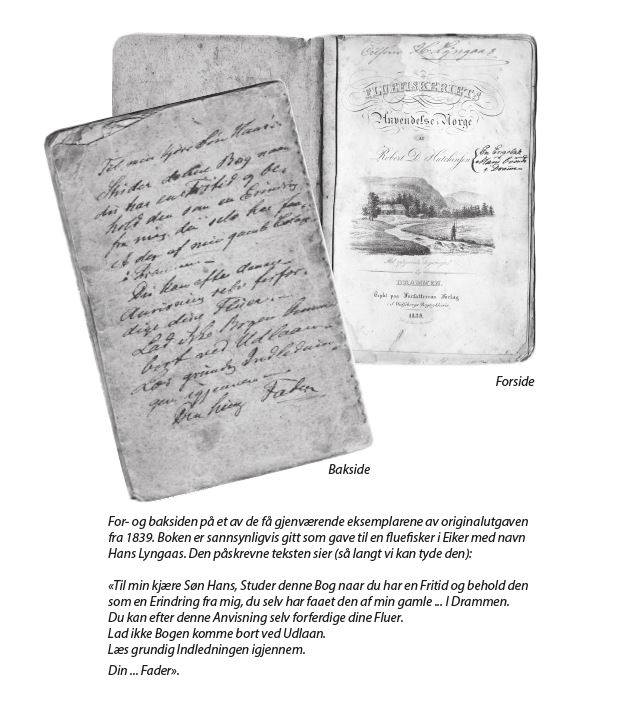 H. Lyngaas
FLUEFISKERIETS
Anvendelse i Norge
AF
Robert D. Hutchinson
DRAMMEN.
Trykt paa Forfatterens Forlag
1839.
Til min kjære Søn Hans
Studer denne Bog naar
du har en Fritid og be-
hold den som en Erindring
fra mig, du selv har faa-
et den af min gamle
i Drammen.
Du kan efter denne
Anvisning selv forfær-
dige dine Fluer.
Lad ikke Bogen komme
bort ved Udlaan.
Læs grundig Indlednin-
gen igjennem.
Din Fader
Forside
Bakside
For- og baksiden på et av de få gjenværende eksemplarene av originalutgaven
fra 1839. Boken er sannsynligvis gitt som gave til en fluefisker i Eiker med navn
Hans Lyngaas. Den påskrevne teksten sier (så langt vi kan tyde den):
«Til min kjære Søn Hans, Studer denne Bog naar du har en Fritid og behold den
som en Erindring fra mig, du selv har faaet den af min gamle ... I Drammen.
Du kan efter denne Anvisning selv forferdige dine Fluer.
Lad ikke Bogen komme bort ved Udlaan.
Læs grundig Indledningen igjennem.
Din ... Fader».